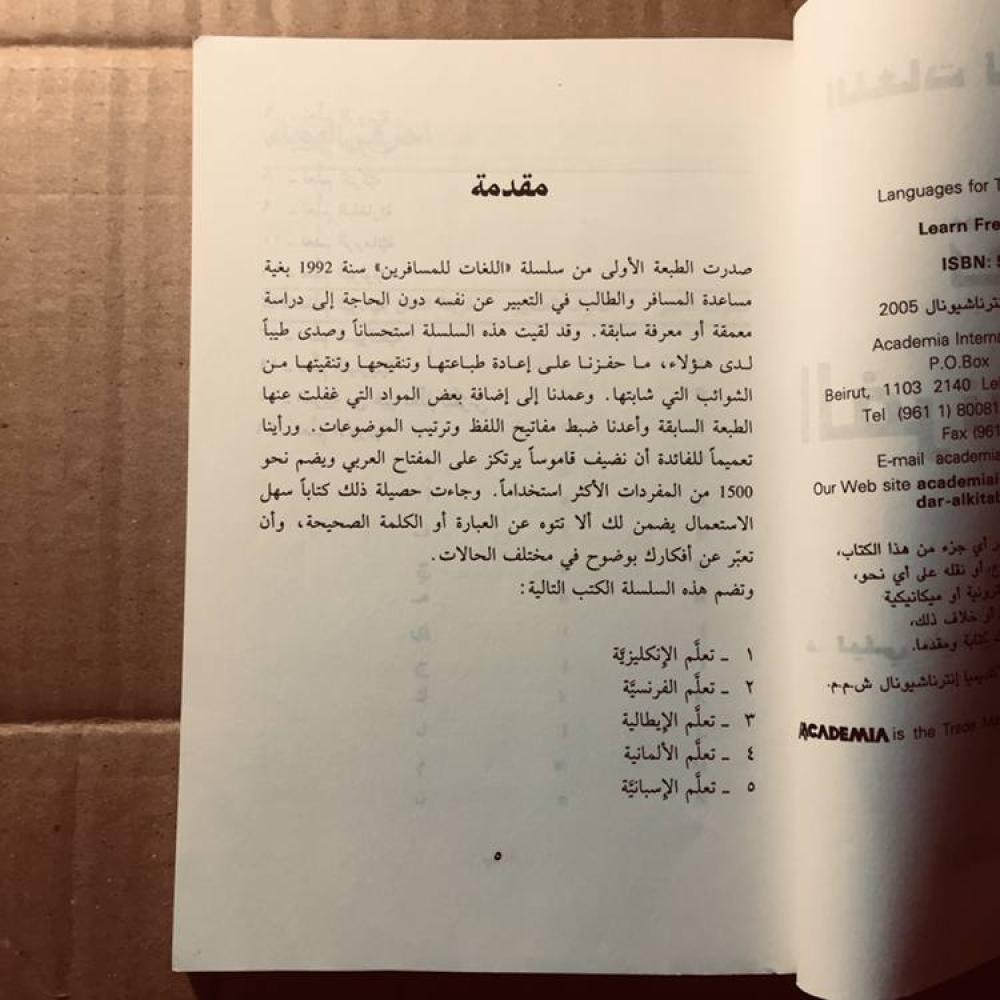 مقدمة
صدرت الطبعة الأولى من سلسلة «اللغات للمسافرين» سنة 1992 بغية
مساعدة المسافر والطالب في التعبير عن نفسه دون الحاجة إلى دراسة
معمقة أو معرفة سابقة. وقد لقيت هذه السلسلة استحساناً وصدى طيباً
لدى هؤلاء، ما حفزنا على إعادة طباعتها وتنقيحها وتنقيتها من
الشوائب التي شابتها. وعمدنا إلى إضافة بعض المواد التي غفلت عنها
الطبعة السابقة وأعدنا ضبط مفاتيح اللفظ وترتيب الموضوعات. ورأينا
تعميماً للفائدة أن نضيف قاموساً يرتكز على المفتاح العربي ويضم نحو
1500 من المفردات الأكثر استخداماً. وجاءت حصيلة ذلك كتاباً سهل
الاستعمال يضمن لك ألا تتوه عن العبارة أو الكلمة الصحيحة، وأن
تعبّر عن أفكارك بوضوح في مختلف الحالات.
وتضم هذه السلسلة الكتب التالية:
١ ـ تعلَّم الإنكليزيَّة
٢ ـ تعلَّم الفرنسيَّة
٣ ـ تعلَّم الإيطالية
٤ ـ تعلَّم الألمانية
٥ ـ تعلَّم الإسبانيَّة
٥
Languages for
Learn
ISBN:
2005
Academia
P.O.Box
Beirut, 1103 2140
Tel (961 1)
Fax (961
E-mail
Our Web site
أي جزء من هذا الكتاب،
أو نقله على أي نحو،
أو ميكانيكية
أو خلاف ذلك،
كتابة ومقدما.
إنترناشيونال ش.م.م.
ACADEMIA is the Trade